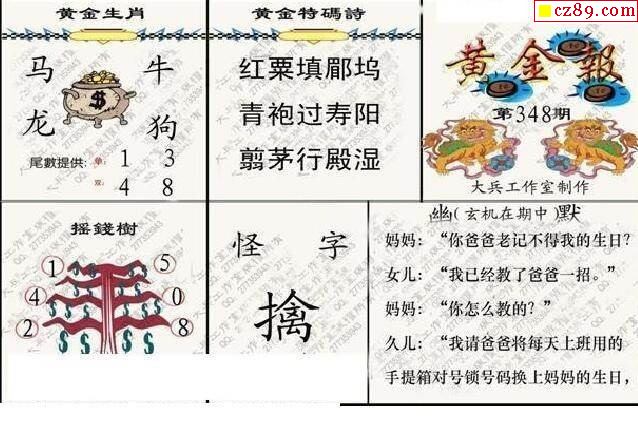 cz89.com
黄金生肖
马 牛
龙 狗
尾數提供:單: 1 3
双: 4 8
黄金特碼詩
红粟填郿坞
青袍过寿阳
翦茅行殿湿
黄金報
第348期
大兵工作室制作
摇錢樹
1 5
4 0
2 8
怪 字
擒
幽(玄机在期中)默
妈妈:“你爸爸老记不得我的生日?
女儿:“我已经教了爸爸一招。”
妈妈:“你怎么教的?”
久儿:“我请爸爸将每天上班用的
手提箱对号锁号码换上妈妈的生日,